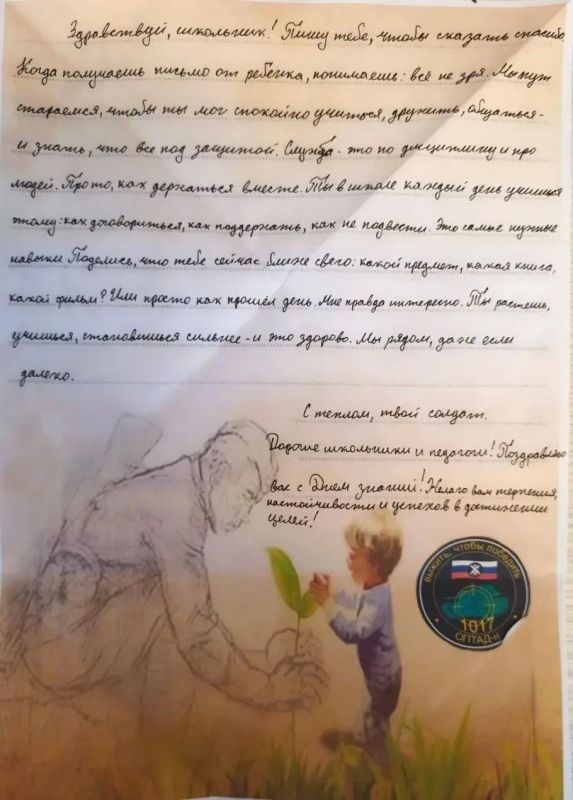 Здравствуй, школьник! Пишу тебе, чтобы сказать спасибо.
Когда получаешь письмо от ребёнка, понимаешь: всё не зря. Мы тут
стараемся, чтобы ты мог спокойно учиться, дружить, общаться -
и знать, что все под защитой. Служба - это по дисциплину и про
людей. Про то, как держаться вместе. Ты в школе каждый день учишься
этому: как договориться, как поддержать, как не подвести. Это самые нужные
навыки Поделись, что тебе сейчас ближе свего: какой предмет, какая книга,
какой фильм? Или просто как прошёл день. Мне правда интересно. Ты растешь,
учишься, становишься сильнее - и это здорово. Мы рядом, даже если
далеко.
С теплом, твой солдат.
Дорогие школьники и педагоги! Поздравляю
вас с Днем знаний! Желаю вам терпения,
настойчивости и успехов в достижении
целей!
Выжить, чтобы победить
1017
ОПТАД-н